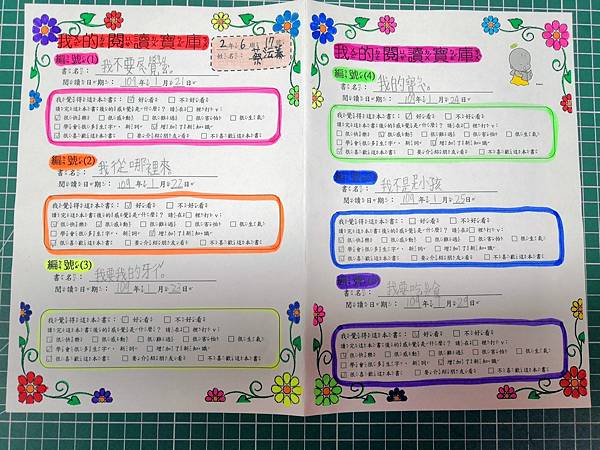 我的閱讀寶庫
2年6班17號
姓名:
編號(1)
書名:我不要尽覺
閱讀日期:109年1月21日
我覺得這本書:☑好看 □不好看
讀完這本書後的感覺是什麼?請在□裡打ˇ:
□很快樂 □很感動 □很難過 □很害怕 □很生氣
□學會很多生字、新詞 ☑增加了新知識
☑很喜歡這本書 □要介紹朋友看 □不喜歡這本書
編號(2)
書名:我從哪裡來
閱讀日期:109年1月22日
我覺得這本書:☑好看 □不好看
讀完這本書後的感覺是什麼?請在□裡打ˇ:
□很快樂 □很感動 □很難過 □很害怕 □很生氣
□學會很多生字、新詞 ☑增加了新知識
☑很喜歡這本書 □要介紹朋友看 □不喜歡這本書
編號(3)
書名:我要我的牙
閱讀日期:109年1月23日
我覺得這本書:☑好看 □不好看
讀完這本書後的感覺是什麼?請在□裡打ˇ:
☑很快樂 □很感動 □很難過 □很害怕 □很生氣
□學會很多生字、新詞 ☑增加了新知識
☑很喜歡這本書 □要介紹朋友看 □不喜歡這本書
我的閱讀寶庫
編號(4)
書名:我的寶
閱讀日期:109年1月24日
我覺得這本書:☑好看 □不好看
讀完這本書後的感覺是什麼?請在□裡打ˇ:
□很快樂 □很感動 □很難過 □很害怕 □很生氣
□學會很多生字、新詞 ☑增加了新知識
☑很喜歡這本書 □要介紹朋友看 □不喜歡這本書
書名:我不是小孩
閱讀日期:109年1月25日
我覺得這本書:☑好看 □不好看
讀完這本書後的感覺是什麼?請在□裡打ˇ:
☑很快樂 □很感動 □很難過 □很害怕 □很生氣
□學會很多生字、新詞 ☑增加了新知識
☑很喜歡這本書 □要介紹朋友看 □不喜歡這本書
書名:我要吃
閱讀日期:109年1月29日
我覺得這本書:☑好看 □不好看
讀完這本書後的感覺是什麼?請在□裡打ˇ:
☑很快樂 □很感動 □很難過 □很害怕 □很生氣
□學會很多生字、新詞 ☑增加了新知識
☑很喜歡這本書 □要介紹朋友看 □不喜歡這本書